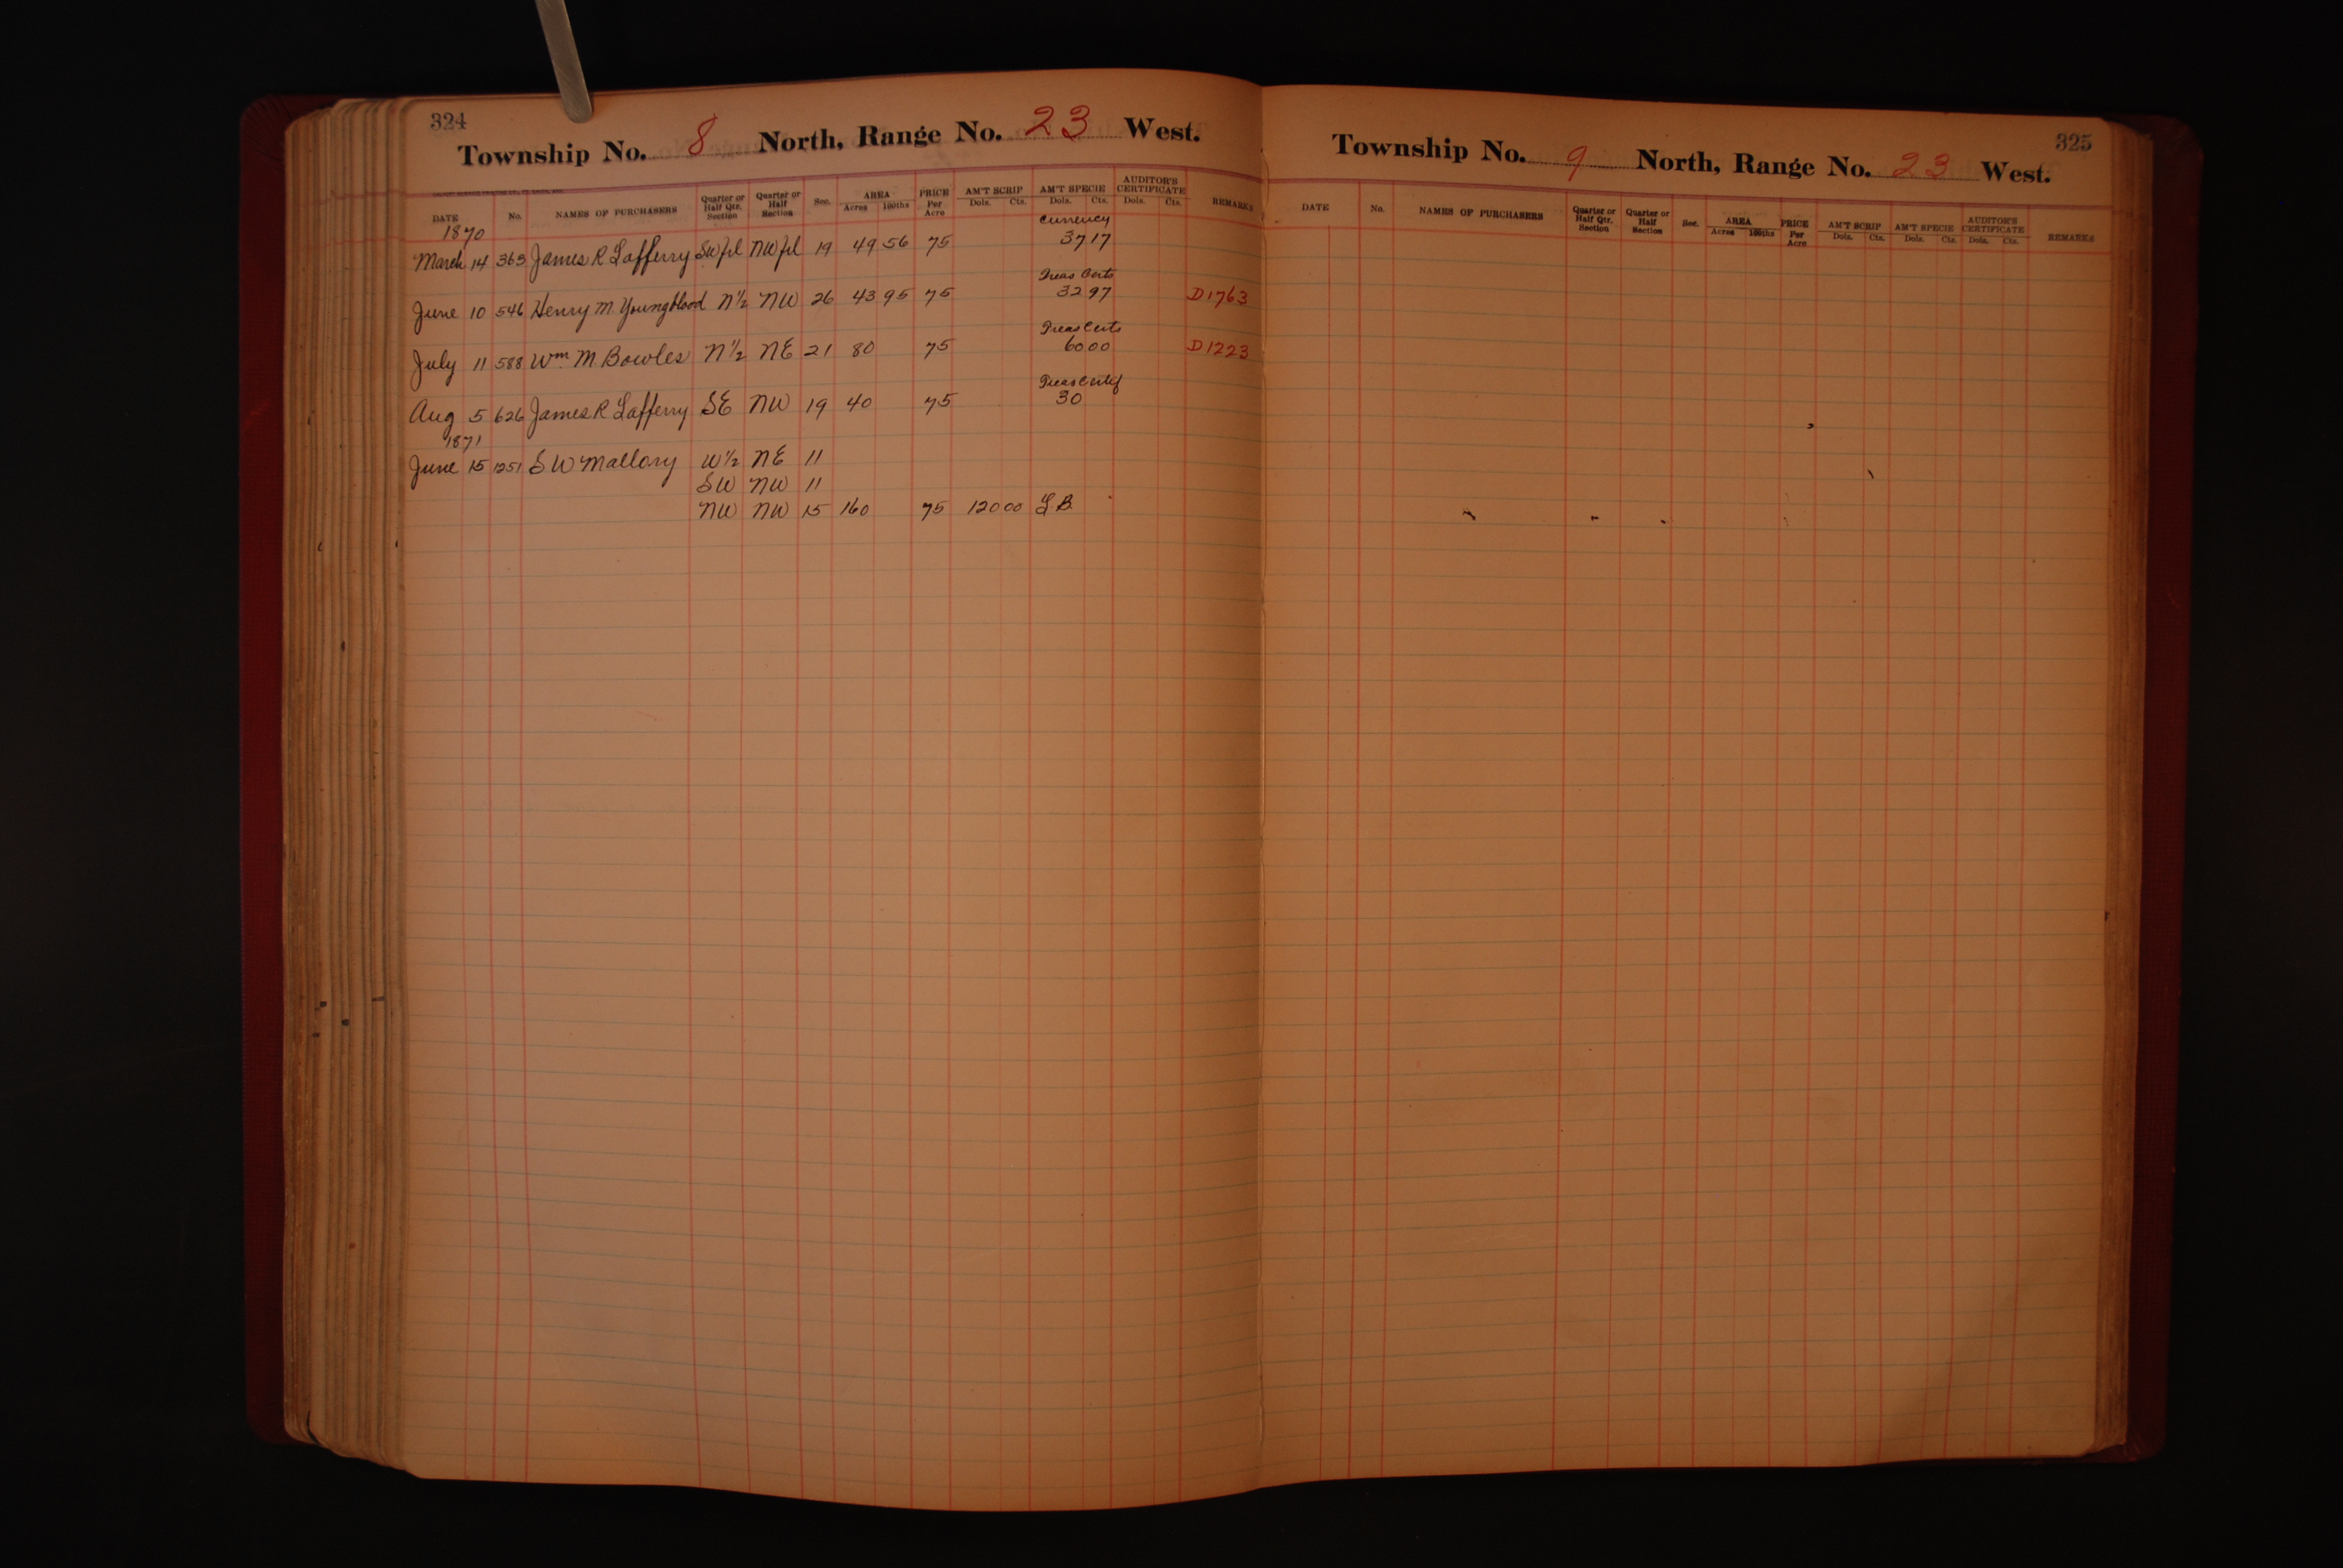 324
Township No. 8 North, Range No. 23 West.
DATE No. NAMES OF PURCHASERS Quarter or Half Qtr. Section Quarter or Half Section Sec. AREA Acres 100ths PRICE Per Acre AM'T SCRIP Dols. Cts. AM'T SPECIE Dols. Cts. AUDITOR'S CERTIFICATE Dols. Cts. REMARKS
1870 Currency
March 14 363 James R Lafferry SW frl NW frl 19 49 56 75 37 17
Treas Certs
June 10 546 Henry M. Youngblood N½ NW 26 43 95 75 32 97 D1763
Treas Certs
July 11 588 Wm. M. Bowles N½ NE 21 80 75 60 00 D1223
Treas Certif
Aug 5 626 James R Lafferry SE NW 19 40 75 30
1871
June 15 1251 S W Mallory W½ NE 11
SW NW 11
NW NW 15 160 75 120 00 L B
325
Township No. 9 North, Range No. 23 West.
DATE No. NAMES OF PURCHASERS Quarter or Half Qtr. Section Quarter or Half Section Sec. AREA Acres 100ths PRICE Per Acre AM'T SCRIP Dols. Cts. AM'T SPECIE Dols. Cts. AUDITOR'S CERTIFICATE Dols. Cts. REMARKS